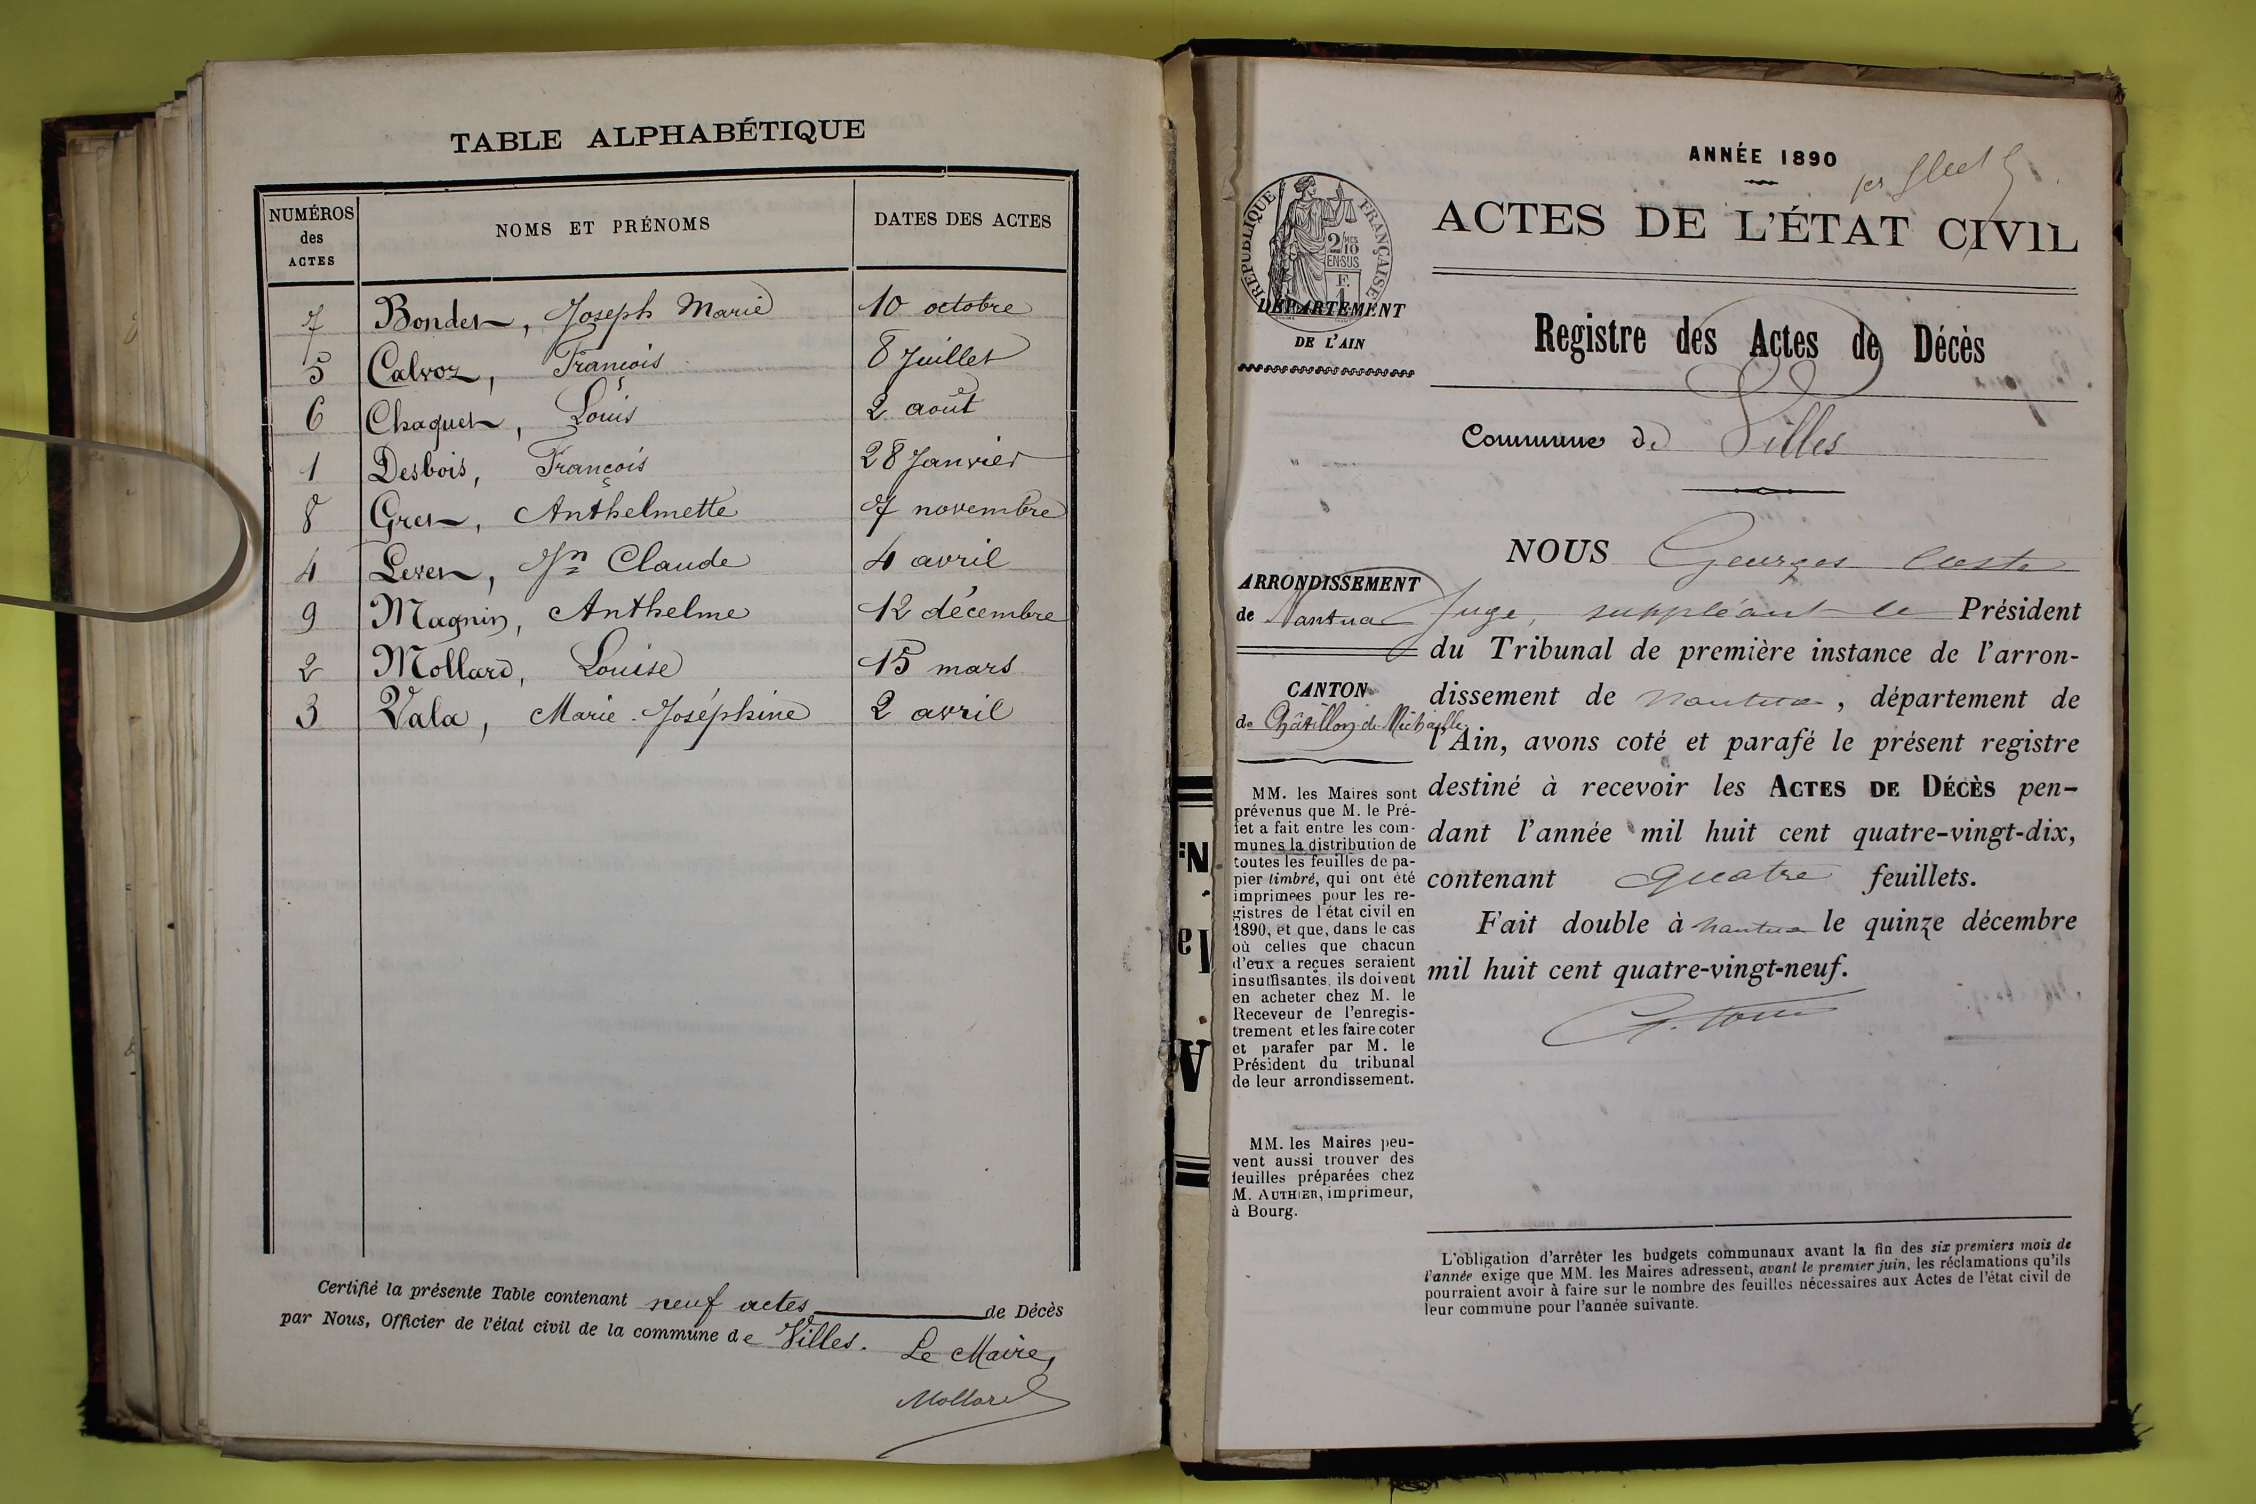 TABLE ALPHABÉTIQUE
NUMÉROS des ACTES
NOMS ET PRÉNOMS
DATES DES ACTES
7 Bondet, Joseph Marie 10 octobre
5 Calvoz, Francois 8 Juillet
6 Chaquet, Louis 2 août
1 Desbois, François 28 Janvier
8 Gret, Anthelmette 7 novembre
4 Levet, Jn Claude 4 avril
9 Magnin, Anthelme 12 décembre
2 Mollard, Louise 15 mars
3 Vala, Marie-Joséphine 2 avril
Certifié la présente Table contenant neuf actes de Décès
par Nous, Officier de l'état civil de la commune de Villes.
Le Maire,
Mollard
ANNÉE 1890
1er
ACTES DE L'ÉTAT CIVIL
RÉPUBLIQUE FRANÇAISE
2/10 MES
EN SUS
F.
1
DÉPARTEMENT
DE L'AIN
Registre des Actes de Décès
Commune de Villes
ARRONDISSEMENT
de Nantua
CANTON
de Châtillon de Michaille
MM. les Maires sont
prévenus que M. le Pré-
fet a fait entre les com-
munes la distribution de
toutes les feuilles de pa-
pier timbré, qui ont été
imprimées pour les re-
gistres de l'état civil en
1890, et que, dans le cas
où celles que chacun
d'eux a reçues seraient
insuffisantes, ils doivent
en acheter chez M. le
Receveur de l'enregis-
trement et les faire coter
et parafer par M. le
Président du tribunal
de leur arrondissement.
MM. les Maires peu-
vent aussi trouver des
feuilles préparées chez
M. AUTHIER, imprimeur,
à Bourg.
NOUS Georges
Juge, suppléant le Président
du Tribunal de première instance de l'arron-
dissement de Nantua, département de
l'Ain, avons coté et parafé le présent registre
destiné à recevoir les ACTES DE DÉCÈS pen-
dant l'année mil huit cent quatre-vingt-dix,
contenant quatre feuillets.
Fait double à Nantua le quinze décembre
mil huit cent quatre-vingt-neuf.
L'obligation d'arrêter les budgets communaux avant la fin des six premiers mois de
l'année exige que MM. les Maires adressent, avant le premier juin, les réclamations qu'ils
pourraient avoir à faire sur le nombre des feuilles nécessaires aux Actes de l'état civil de
leur commune pour l'année suivante.